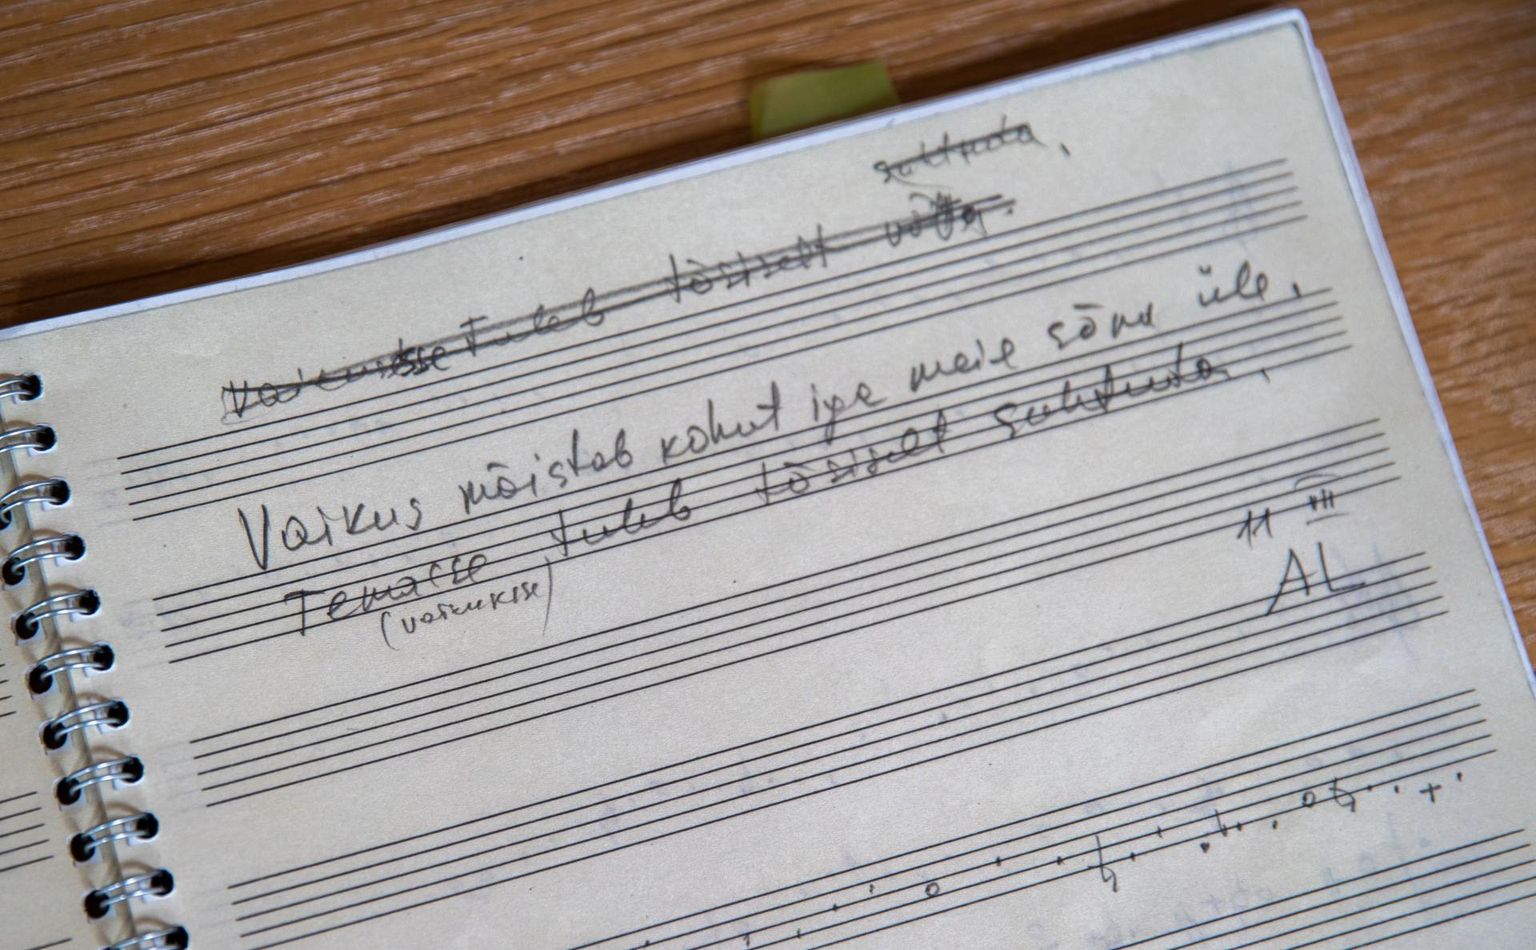 suhtuda,
Vaikusesse Tuleb tõsiselt võtta.
Vaikus mõistab kohut iga meie sõna üle,
Temasse tuleb tõsiselt suhtuda,
(vaikusse)
11 III
AL